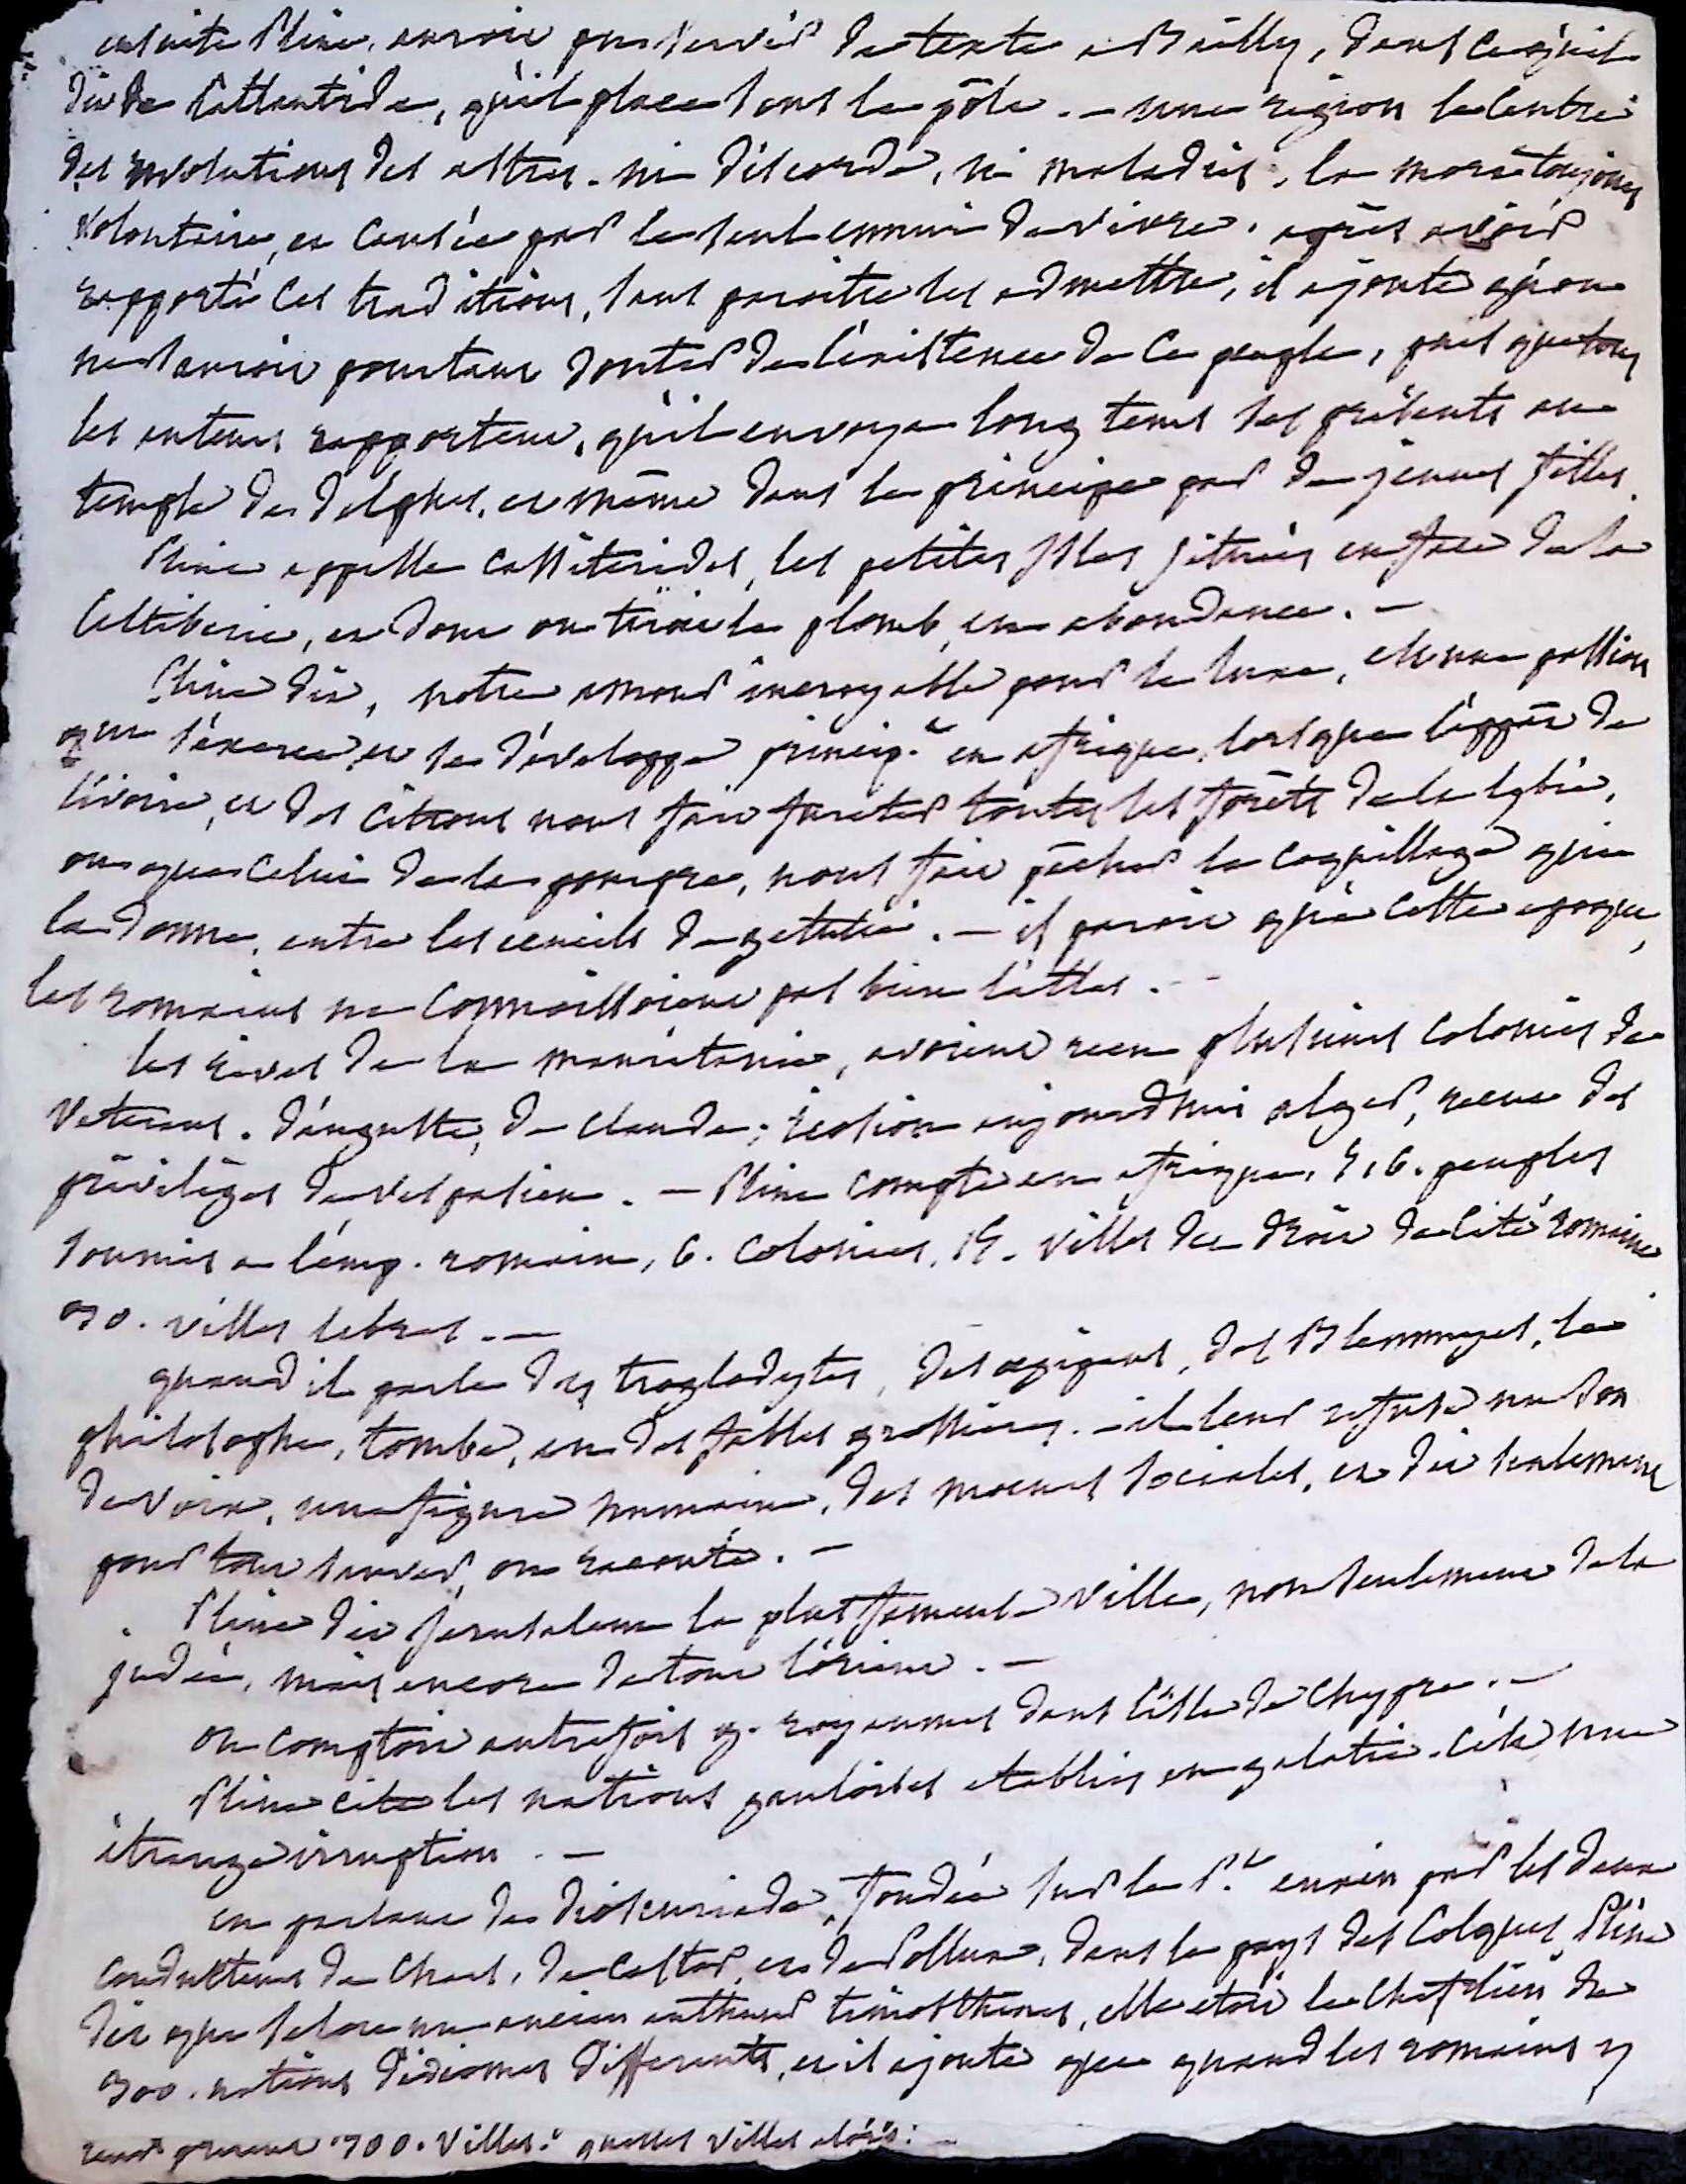 ensuite Pline, auroit pu servir de texte a Bailly, dans ce qu'il
dit de l'attlantide, qu'il place sous le pôle. — une région le centre
des révolutions des astres. ni discorde, ni maladies, la mort toujours
volontaire, et causée par le seul ennui de vivre. après avoir
rapporté ces traditions, sans paroitre les admettre, il ajoute qu'on
ne sauroit pourtant douter de l'existence de ce peuple, puis que tous
les auteurs rapportent, qu'il envoya long tems des présents au
temple de delphes, et même dans le principe par de jeunes filles.
Pline appelle cassiterides, les petites isles situées en face de la
Celtiberie, et dont on tiroit le plomb, en abondance. —
Pline dit, notre amour incroyable pour le luxe, est une passion
qui s'exerce, et se développe princip.t en afrique, lorsque l'appât de
l'ivoire, et des citrons nous fait fureter toutes les forêts de la lybie,
ou que celui de la pourpre, nous fait pêcher le coquillage qui
la donne, entre les ecueils de getulie. — il paroit qu'à cette epoque,
les romains ne connaissoient pas bien l'attlas. —
les rives de la mauritanie, avoient reçu plusieurs colonies de
veterans. d'auguste, de claude; icosion aujourdhui alger, reçut des
privilèges de vespasien. — Pline compte en afrique, 516. peuples
soumis a l'emp. romain, 6. colonies, 15. villes de droit de cité romaine
30. villes libres. —
quand il parle des troglodytes, des egipans, des Blemmyes, le
philosophe, tombe, en des fables grossières. — il leur refuse un son
de voix, une figure humaine, des moeurs sociales, et dit seulement
pour tout sauver, on raconte. —
Pline dit Jerusalem la plus fameuse ville, non seulement de la
judée, mais encore de tout l'orient. —
on comptoit autrefois 9. royaumes dans l'isle de Chypre. —
Pline cite les nations gauloises etablies en galatie. c'est une
étrange irruption. —
en parlant de dioscuriade, fondée sur le P.t euxin par les deux
conducteurs de chars, de castor, et de Pollux, dans le pays des Colques Pline
dit que selon un ancien autheur timosthenes, elle etoit le chef lieu de
300. nations d'idiomes differents, et il ajoute que quand les romains y
villes. quelles villes alors: —